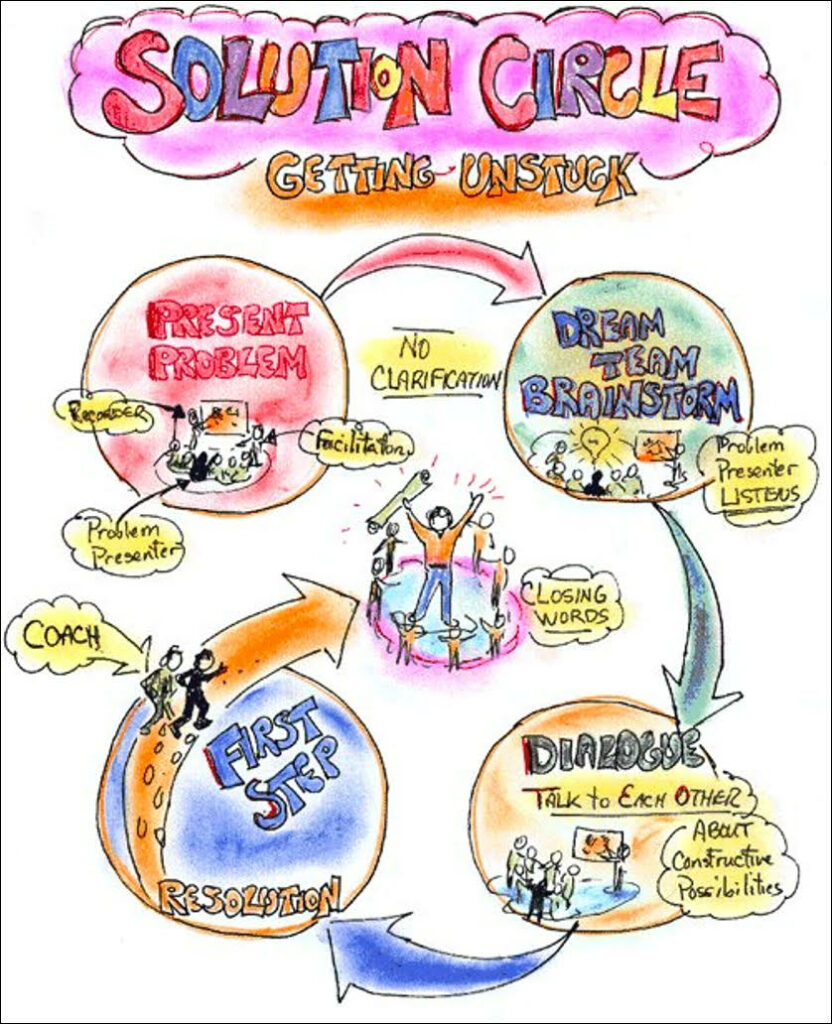 SOLUTION CIRCLE
GETTING UNSTUCK
PRESENT
PROBLEM
RECORDER
Facilitator
Problem
Presenter
NO
CLARIFICATION
DREAM
TEAM
BRAINSTORM
Problem
Presenter
LISTENS
CLOSING
WORDS
COACH
FIRST
STEP
RESOLUTION
DIALOGUE
TALK to EACH OTHER
ABOUT
Constructive
Possibilities